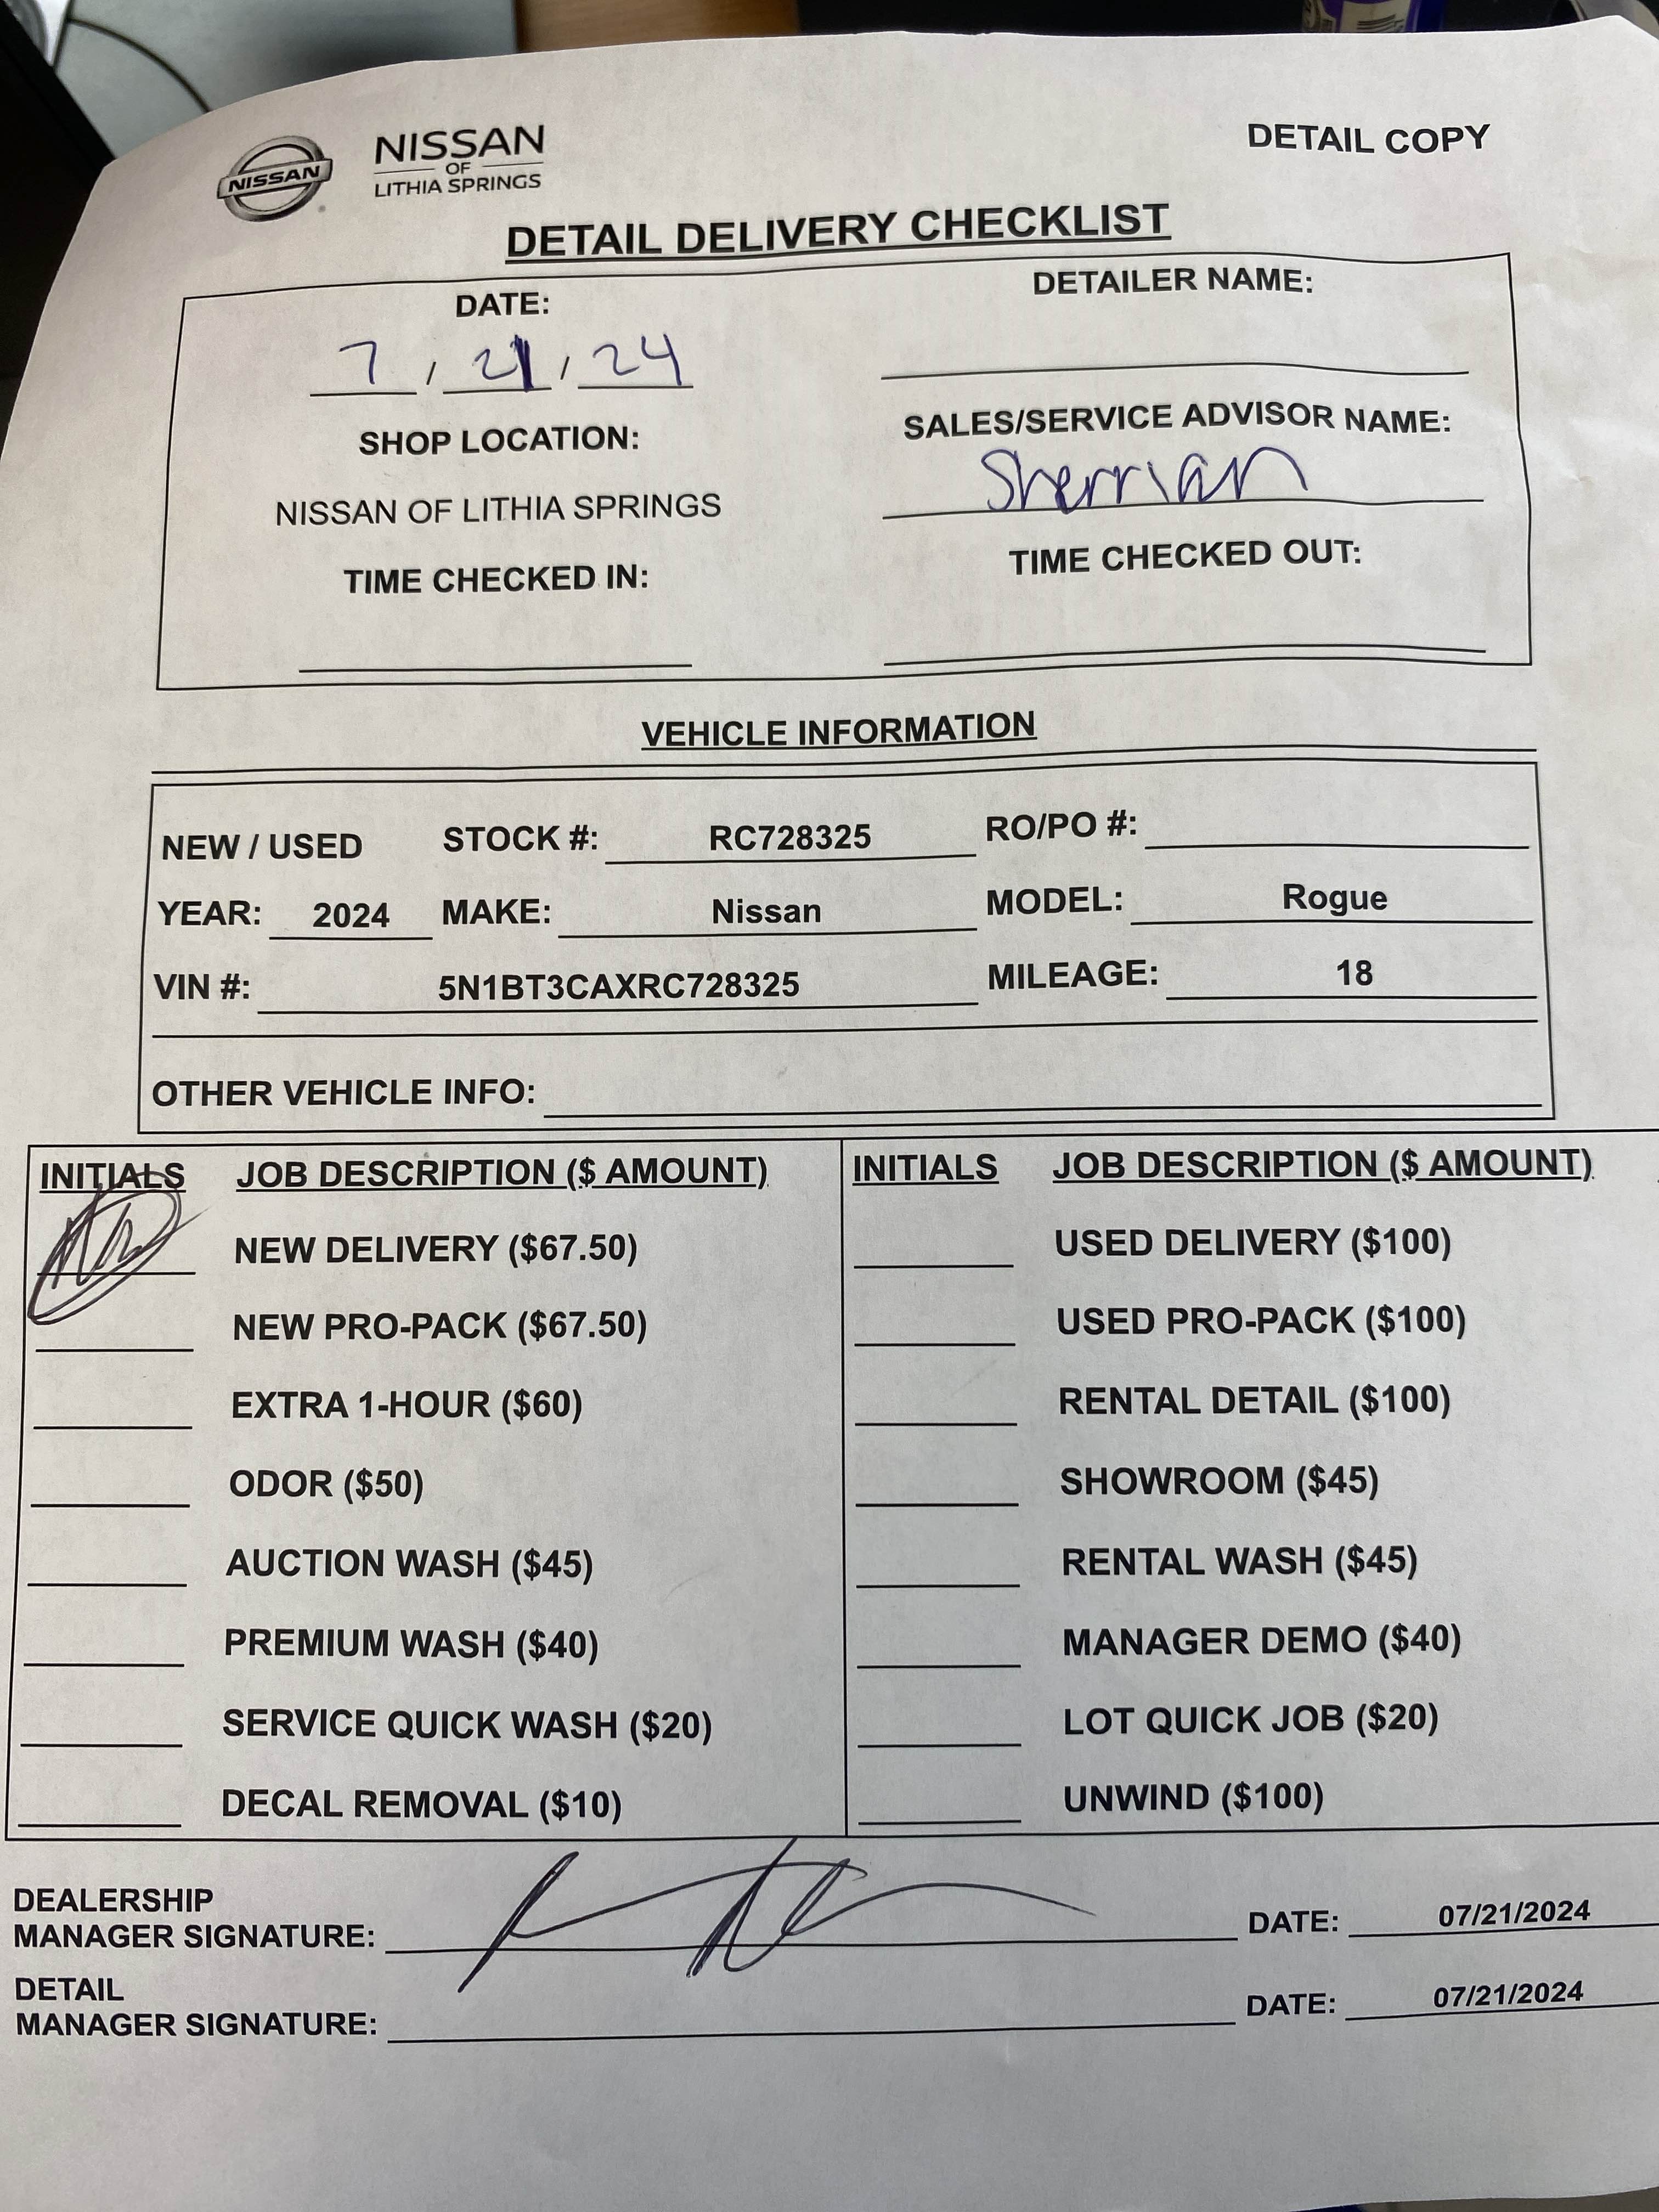 NISSAN
NISSAN
OF
LITHIA SPRINGS
DETAIL COPY
DETAIL DELIVERY CHECKLIST
DATE:
7 / 21 / 24
DETAILER NAME:
SHOP LOCATION:
NISSAN OF LITHIA SPRINGS
SALES/SERVICE ADVISOR NAME:
Sherrian
TIME CHECKED IN:
TIME CHECKED OUT:
VEHICLE INFORMATION
NEW / USED STOCK #: RC728325 RO/PO #:
YEAR: 2024 MAKE: Nissan MODEL: Rogue
VIN #: 5N1BT3CAXRC728325 MILEAGE: 18
OTHER VEHICLE INFO:
INITIALS JOB DESCRIPTION ($ AMOUNT) INITIALS JOB DESCRIPTION ($ AMOUNT)
NEW DELIVERY ($67.50) USED DELIVERY ($100)
NEW PRO-PACK ($67.50) USED PRO-PACK ($100)
EXTRA 1-HOUR ($60) RENTAL DETAIL ($100)
ODOR ($50) SHOWROOM ($45)
AUCTION WASH ($45) RENTAL WASH ($45)
PREMIUM WASH ($40) MANAGER DEMO ($40)
SERVICE QUICK WASH ($20) LOT QUICK JOB ($20)
DECAL REMOVAL ($10) UNWIND ($100)
DEALERSHIP
MANAGER SIGNATURE: DATE: 07/21/2024
DETAIL
MANAGER SIGNATURE: DATE: 07/21/2024